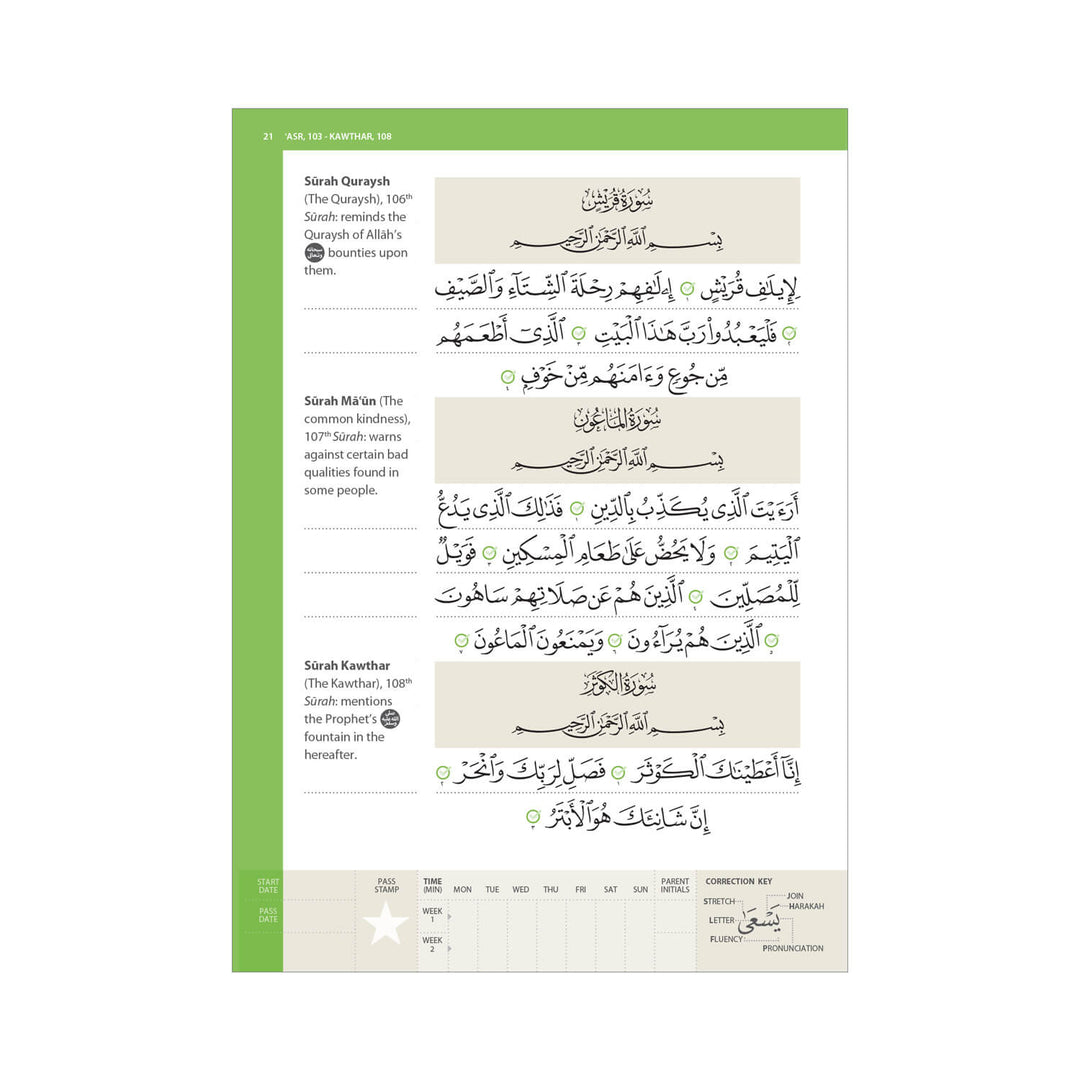 21 ʿASR, 103 - KAWTHAR, 108
Sūrah Quraysh
(The Quraysh), 106th
Sūrah: reminds the
Quraysh of Allāh’s
bounties upon
them.
سُورَةُ قُرَيْشٍ
بِسْمِ ٱللَّهِ ٱلرَّحْمَٰنِ ٱلرَّحِيمِ
لِإِيلَٰفِ قُرَيْشٍ ١ إِۦلَٰفِهِمْ رِحْلَةَ ٱلشِّتَآءِ وَٱلصَّيْفِ
٢ فَلْيَعْبُدُوا۟ رَبَّ هَٰذَا ٱلْبَيْتِ ٣ ٱلَّذِىٓ أَطْعَمَهُم
مِّن جُوعٍ وَءَامَنَهُم مِّنْ خَوْفٍۭ ٤
Sūrah Māʿūn (The
common kindness),
107th Sūrah: warns
against certain bad
qualities found in
some people.
سُورَةُ المَاعُونِ
بِسْمِ ٱللَّهِ ٱلرَّحْمَٰنِ ٱلرَّحِيمِ
أَرَءَيْتَ ٱلَّذِى يُكَذِّبُ بِٱلدِّينِ ١ فَذَٰلِكَ ٱلَّذِى يَدُعُّ
ٱلْيَتِيمَ ٢ وَلَا يَحُضُّ عَلَىٰ طَعَامِ ٱلْمِسْكِينِ ٣ فَوَيْلٌ
لِّلْمُصَلِّينَ ٤ ٱلَّذِينَ هُمْ عَن صَلَاتِهِمْ سَاهُونَ
٥ ٱلَّذِينَ هُمْ يُرَآءُونَ ٦ وَيَمْنَعُونَ ٱلْمَاعُونَ ٧
Sūrah Kawthar
(The Kawthar), 108th
Sūrah: mentions
the Prophet’s
fountain in the
hereafter.
سُورَةُ الكَوْثَرِ
بِسْمِ ٱللَّهِ ٱلرَّحْمَٰنِ ٱلرَّحِيمِ
إِنَّآ أَعْطَيْنَٰكَ ٱلْكَوْثَرَ ١ فَصَلِّ لِرَبِّكَ وَٱنْحَرْ ٢
إِنَّ شَانِئَكَ هُوَ ٱلْأَبْتَرُ ٣
START
DATE
PASS
DATE
PASS
STAMP
TIME
(MIN) MON TUE WED THU FRI SAT SUN
WEEK
1
WEEK
2
PARENT
INITIALS
CORRECTION KEY
STRETCH
JOIN
HARAKAH
LETTER
يَسْعَىٰ
FLUENCY
PRONUNCIATION